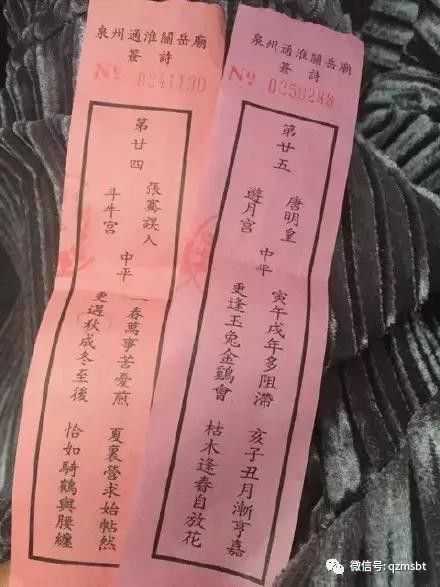 泉州通淮關岳廟
簽詩
Nº
第廿四
張騫誤入
斗牛宮
中平
一春萬事苦憂煎
夏裏營求始帖然
更遇秋成冬至後
恰如騎鶴與腰纏
泉州通淮關岳廟
簽詩
Nº
第廿五
唐明皇
遊月宮
中平
寅午戌年多阻滯
亥子丑月漸亨嘉
更逢玉兔金鷄會
枯木逢春自放花
微信号: qzmsbt